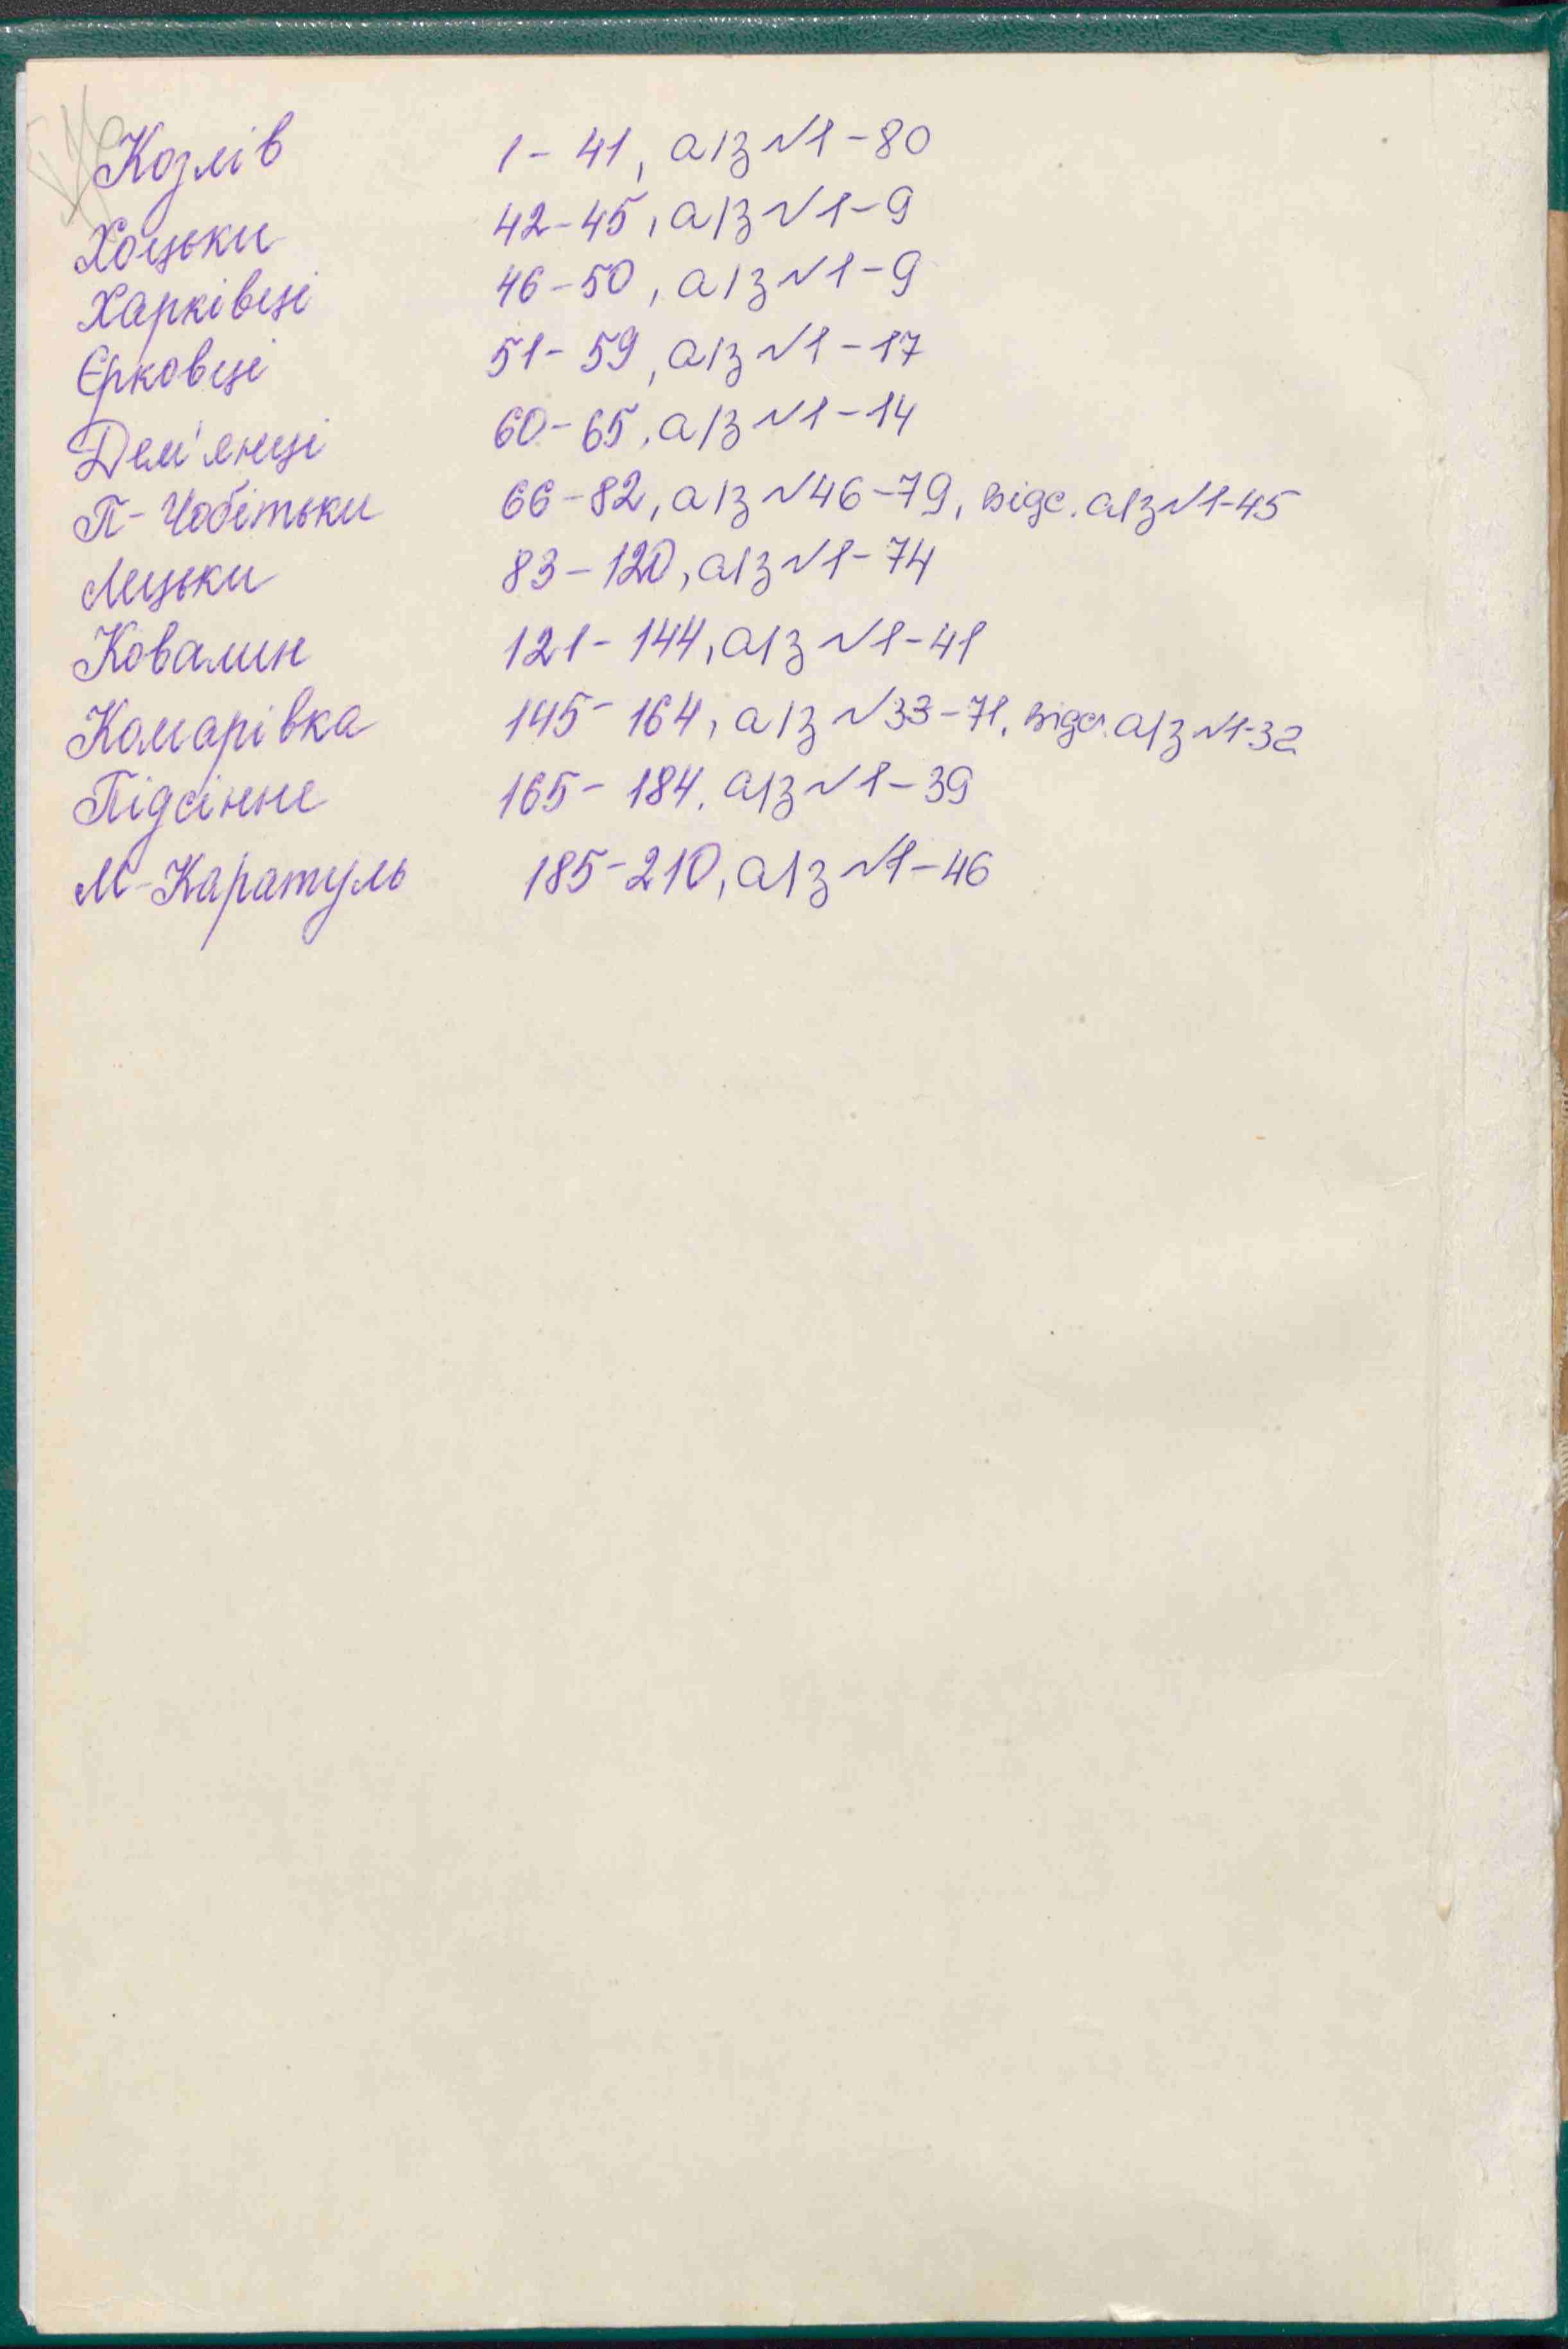 Козлів 1-41, а/з №1-80
Хоцьки 42-45, а/з №1-9
Харківці 46-50, а/з №1-9
Єрковці 51-59, а/з №1-17
Дем'янці 60-65, а/з №1-14
П-Чобітьки 66-82, а/з №46-79, відс. а/з №1-45
Лецьки 83-120, а/з №1-74
Ковалин 121-144, а/з №1-41
Комарівка 145-164, а/з №33-71, відс. а/з №1-32
Підсінне 165-184, а/з №1-39
М-Каратуль 185-210, а/з №1-46